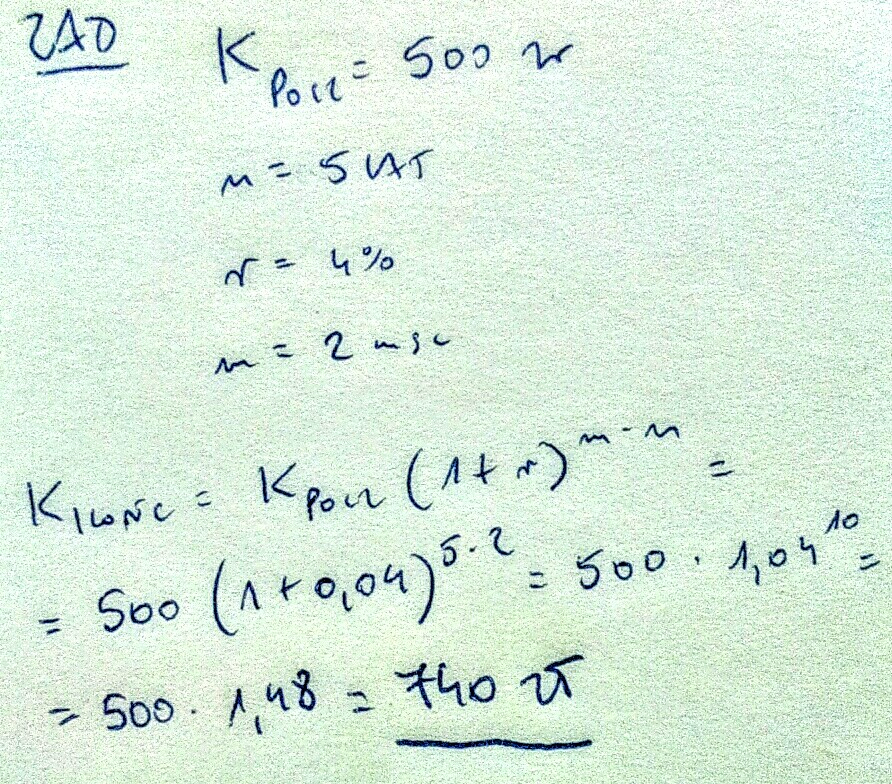 ZAD K pocz = 500 zł
n = 5 LAT
r = 4%
m = 2 msc
K KOŃC = K pocz (1 + r)^m·n =
= 500 (1 + 0,04)^5·2 = 500 · 1,04^10 =
= 500 · 1,48 = 740 zł